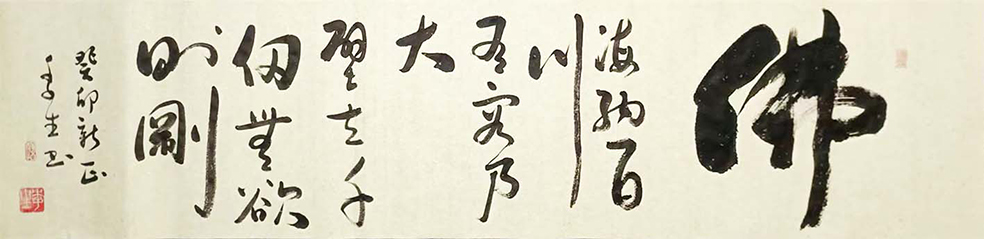 佛
海納百
川
有容乃
大
壁立千
仞無欲
則剛
癸卯新正
生书